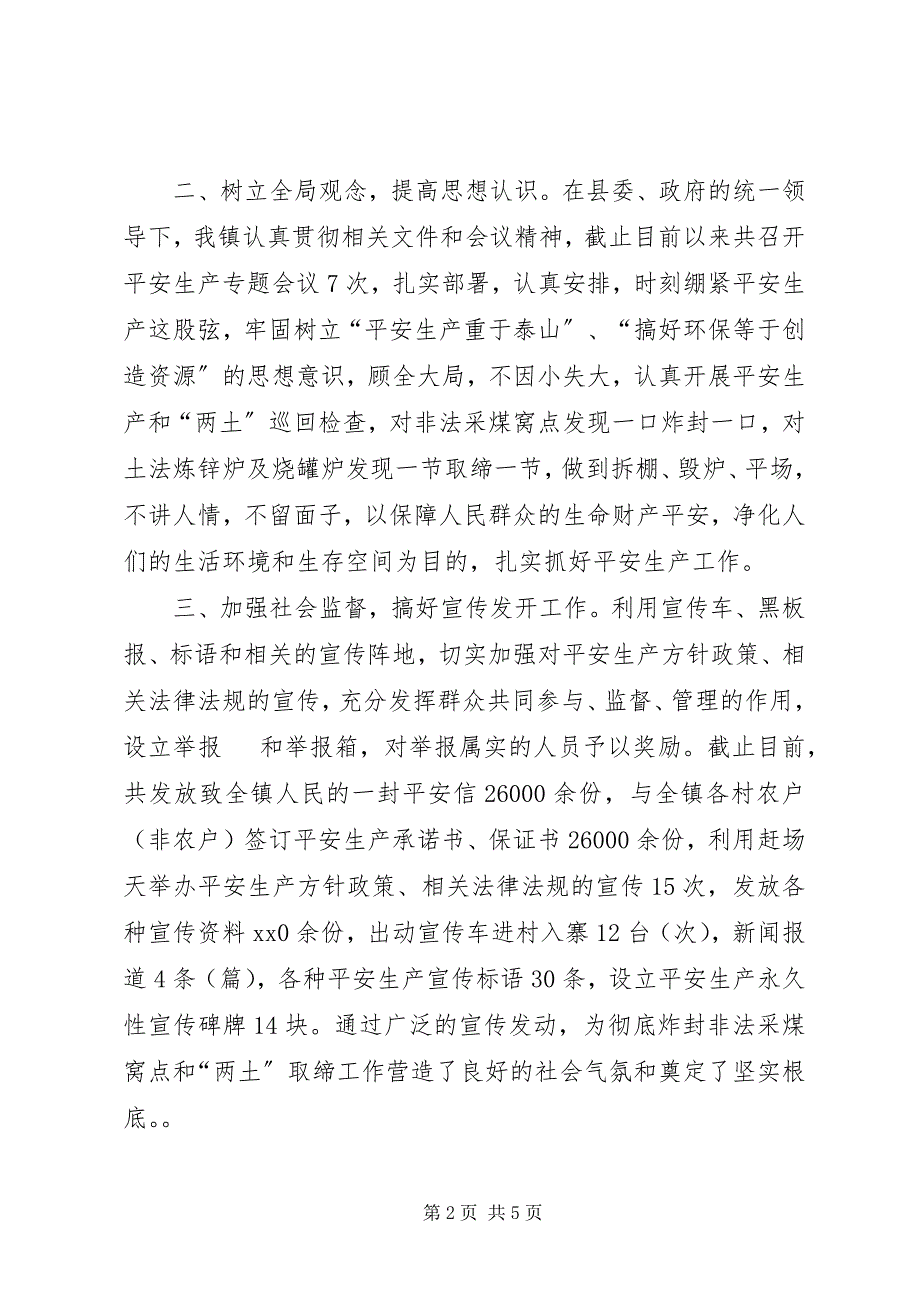 二、树立全局观念，提高思想认识。在县委、政府的统一领
导下，我镇认真贯彻相关文件和会议精神，截止目前以来共召开
平安生产专题会议 7 次，扎实部署，认真安排，时刻绷紧平安生
产这股弦，牢固树立“平安生产重于泰山〞、“搞好环保等于创
造资源〞的思想意识，顾全大局，不因小失大，认真开展平安生
产和“两土〞巡回检查，对非法采煤窝点发现一口炸封一口，对
土法炼锌炉及烧罐炉发现一节取缔一节，做到拆棚、毁炉、平场，
不讲人情，不留面子，以保障人民群众的生命财产平安，净化人
们的生活环境和生存空间为目的，扎实抓好平安生产工作。
三、加强社会监督，搞好宣传发开工作。利用宣传车、黑板
报、标语和相关的宣传阵地，切实加强对平安生产方针政策、相
关法律法规的宣传，充分发挥群众共同参与、监督、管理的作用，
设立举报 和举报箱，对举报属实的人员予以奖励。截止目前，
共发放致全镇人民的一封平安信 26000 余份，与全镇各村农户
（非农户）签订平安生产承诺书、保证书 26000 余份，利用赶场
天举办平安生产方针政策、相关法律法规的宣传 15 次，发放各
种宣传资料 xx0 余份，出动宣传车进村入寨 12 台（次），新闻报
道 4 条（篇），各种平安生产宣传标语 30 条，设立平安生产永久
性宣传碑牌 14 块。通过广泛的宣传发动，为彻底炸封非法采煤
窝点和“两土〞取缔工作营造了良好的社会气氛和奠定了坚实根
底。。
第 2 页 共 5 页